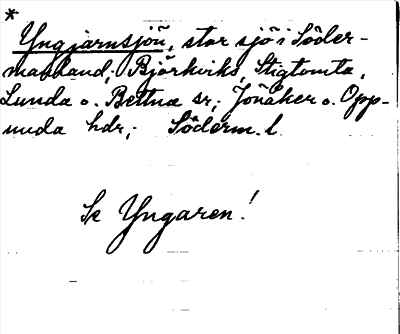 *
Yngjarnsjön, stor sjö i Söder-
manland; Björkviks, Stigtomta,
Lunda o. Bettna sr; Jönåker o. Opp-
unda hdr; Söderm. l.
Se Yngaren!